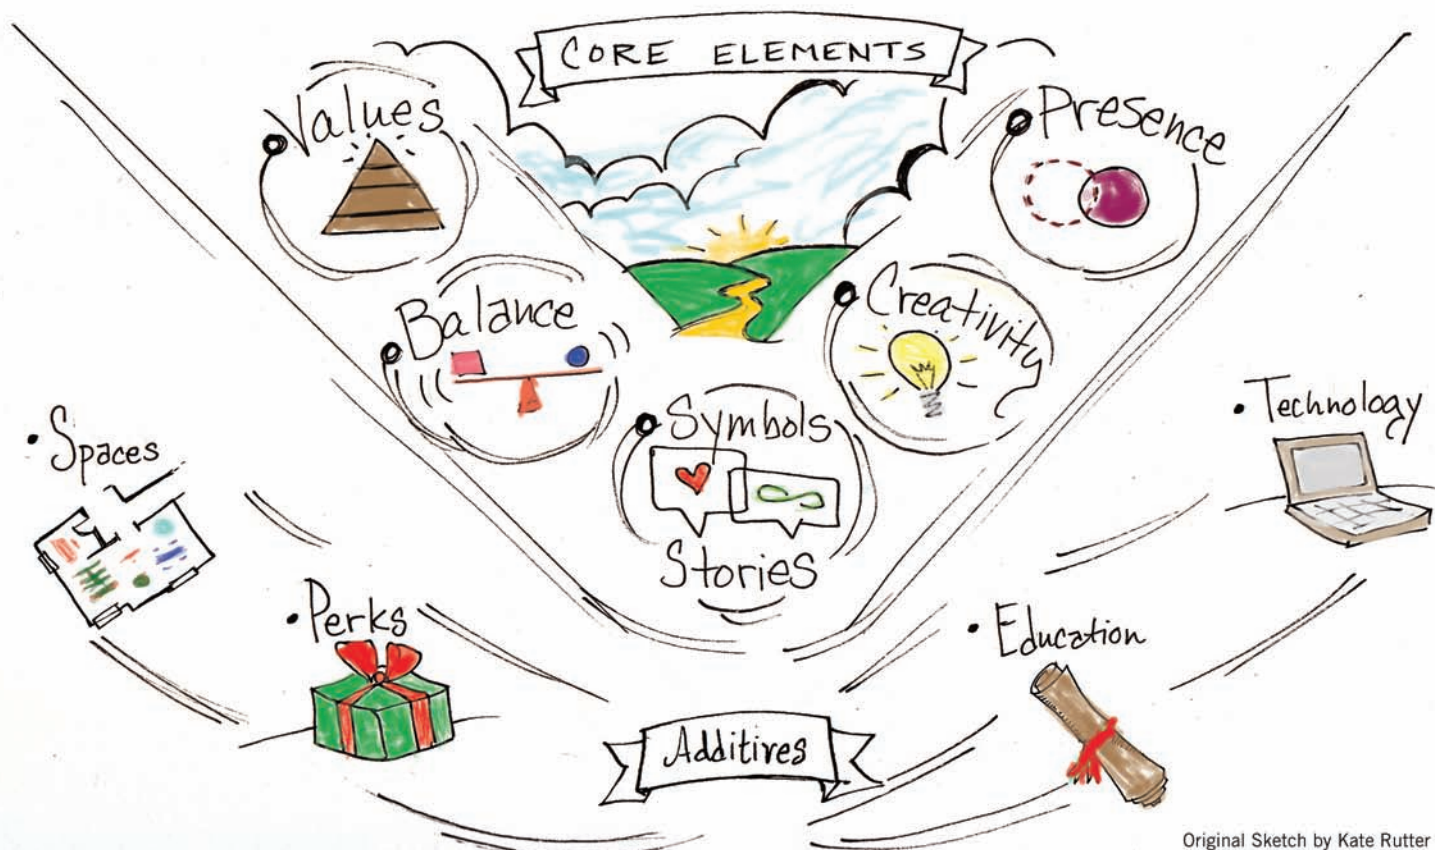 CORE ELEMENTS
Values
Presence
Balance
Creativity
Symbols
Stories
Technology
• Spaces
• Perks
• Education
Additives
Original Sketch by Kate Rutter